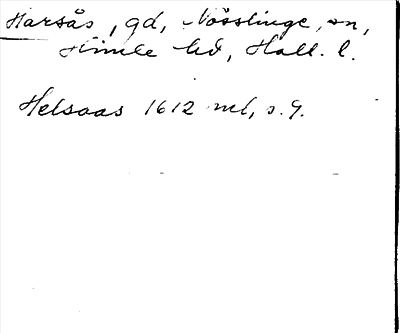 Harsås, gd, Nösslinge sn,
Himle hd, Hall. l.
Helsaas 1612 ml, s. 9.